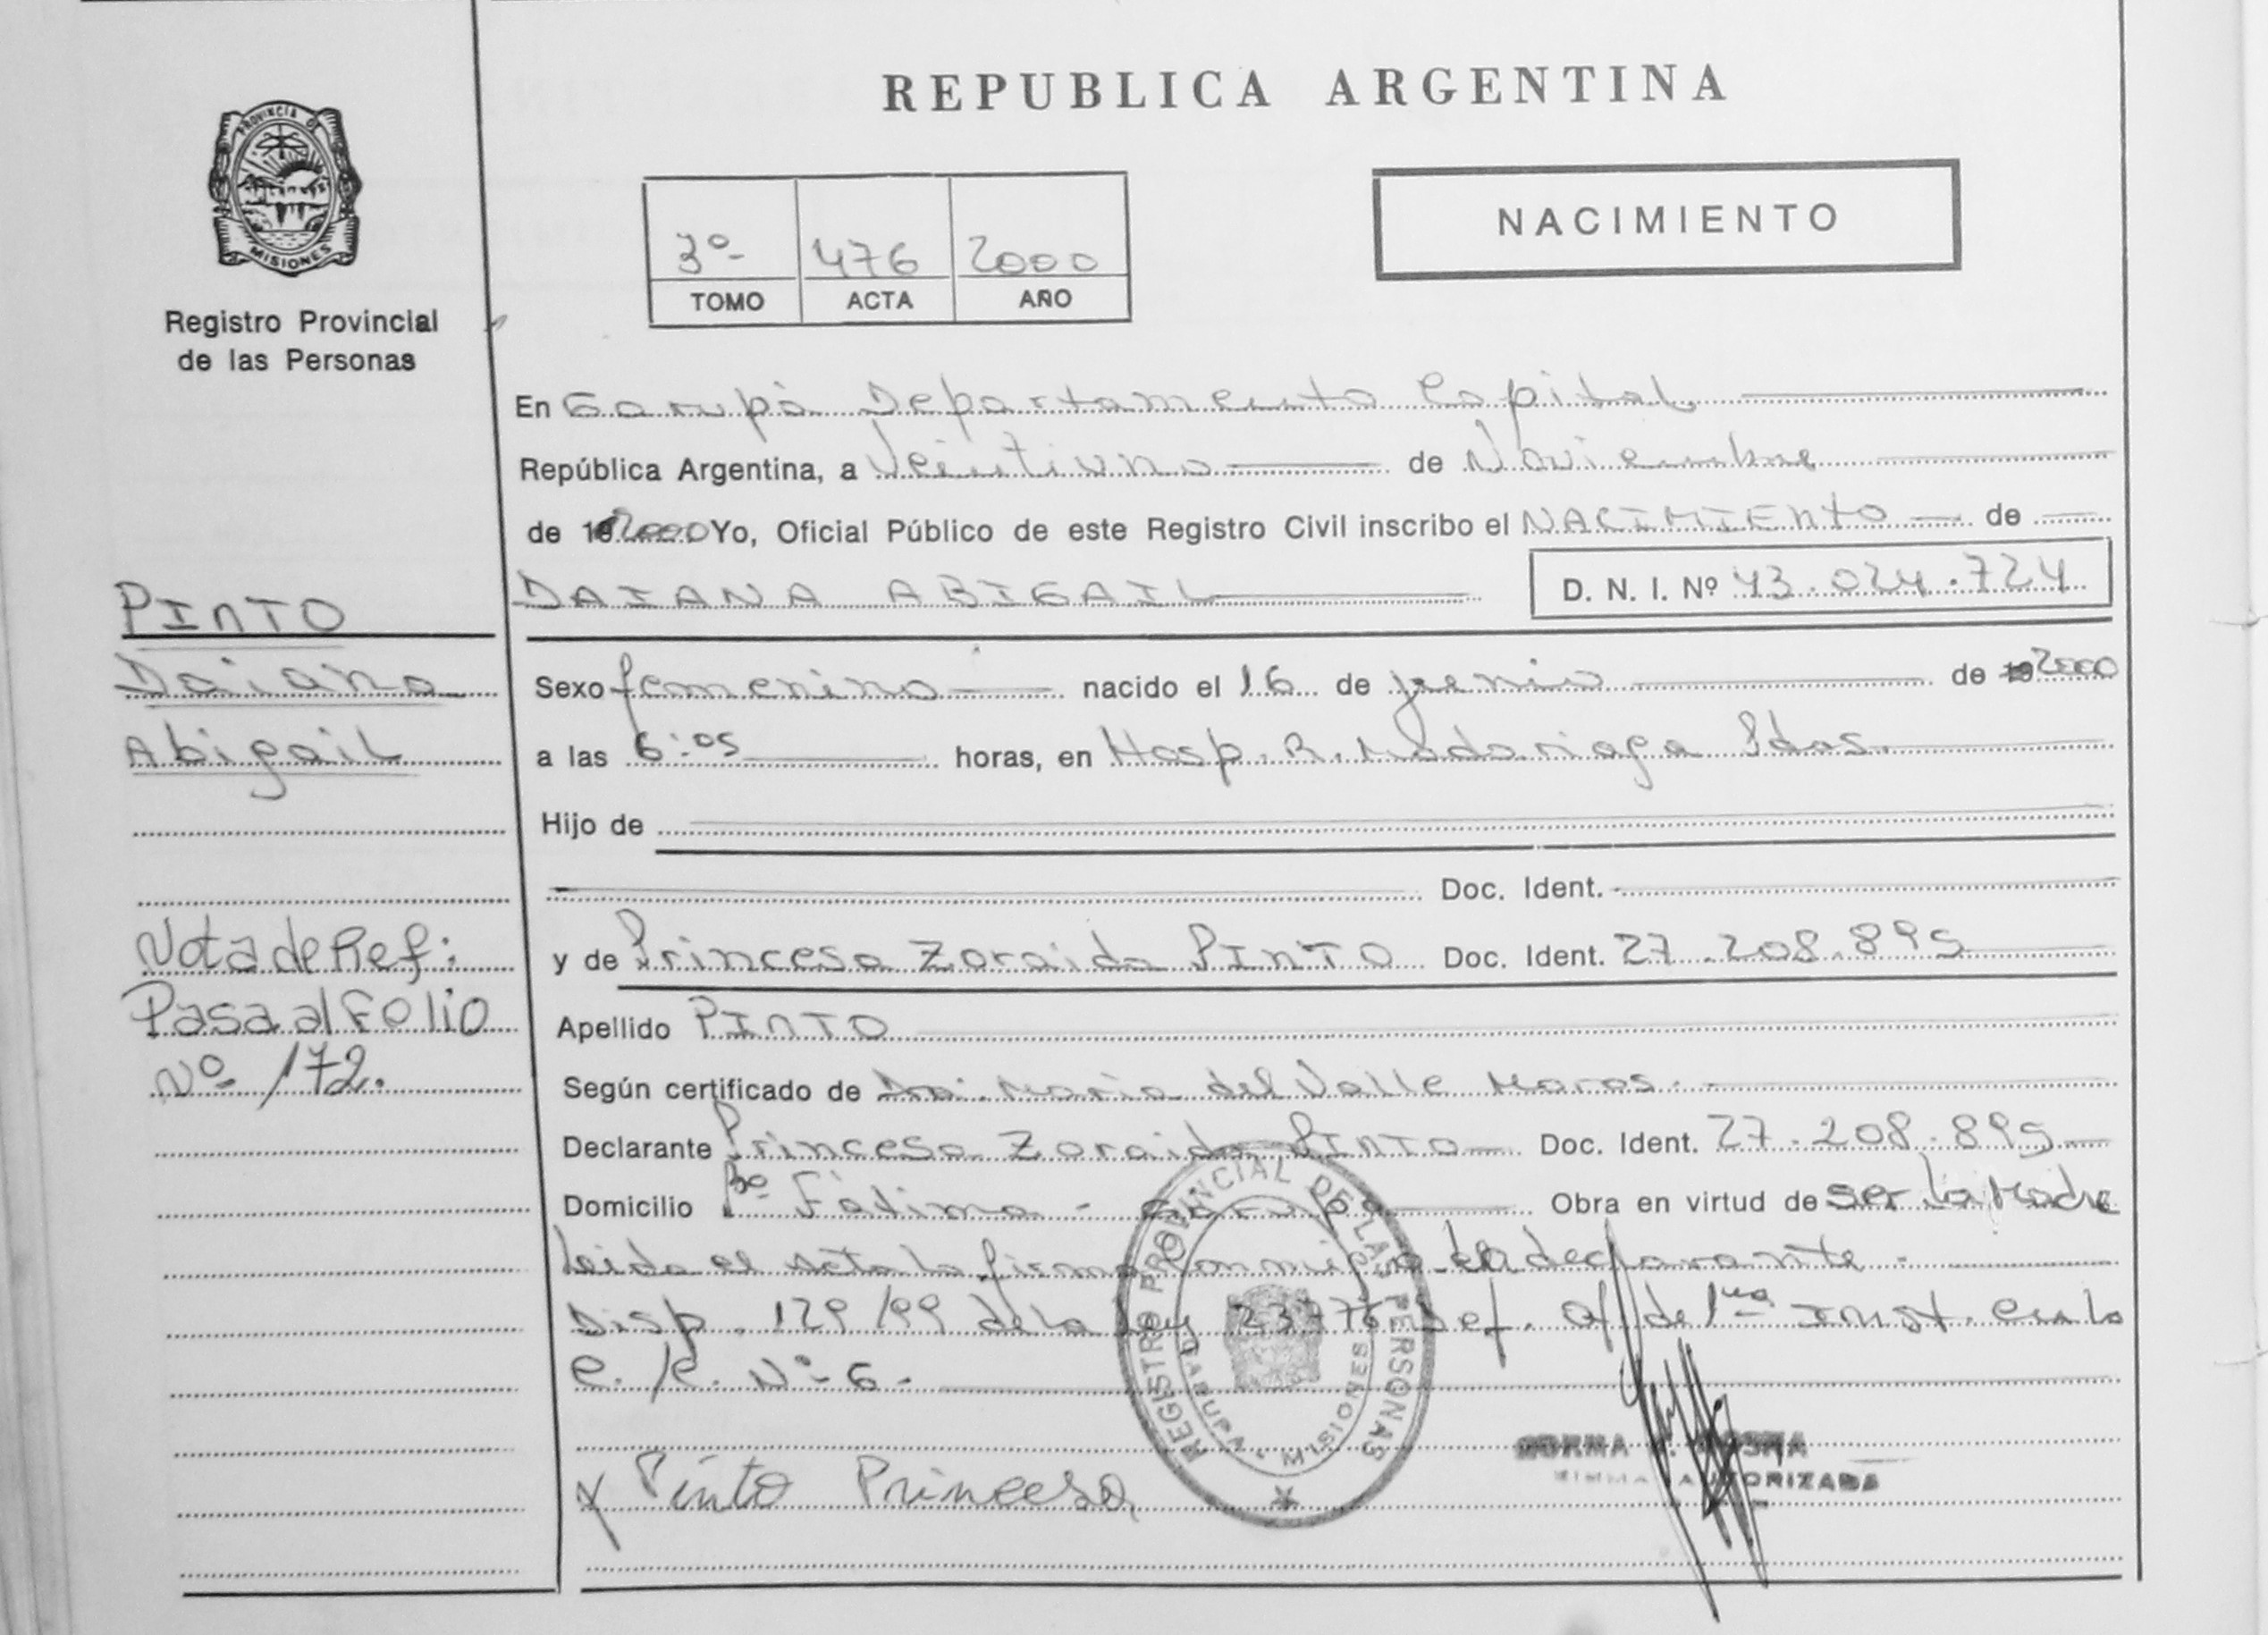 REPUBLICA ARGENTINA
PROVINCIA DE
MISIONES
Registro Provincial
de las Personas
3º 476 2000
TOMO ACTA AÑO
NACIMIENTO
En Garupá Departamento Capital
República Argentina, a Veintiuno de Noviembre
de 192000 Yo, Oficial Público de este Registro Civil inscribo el NACIMIENTO de
DAIANA ABIGAIL D. N. I. Nº 43.024.724
PINTO
Daiana
Abigail
Sexo femenino nacido el 16 de junio de 192000
a las 6:05 horas, en Hosp. R. Madariaga Pdas.
Hijo de
Doc. Ident.
y de Princesa Zoraida PINTO Doc. Ident. 27.208.895
Nota de Ref:
Pasa al Folio
Nº 172.
Apellido PINTO
Según certificado de Dra. María del Valle Maros.
Declarante Princesa Zoraida PINTO Doc. Ident. 27.208.895
Domicilio Bº Fátima - Garupá Obra en virtud de ser la Madre
Leida el Acta la firma conmigo la declarante.
Disp. 129/99 de la Ley 23.776 Def. de 1ra Inst. en lo
C./C. Nº 6.
REGISTRO PROVINCIAL DE LAS PERSONAS
GARUPA - MISIONES
x Pinto Princesa
NORMA
FIRMA AUTORIZADA